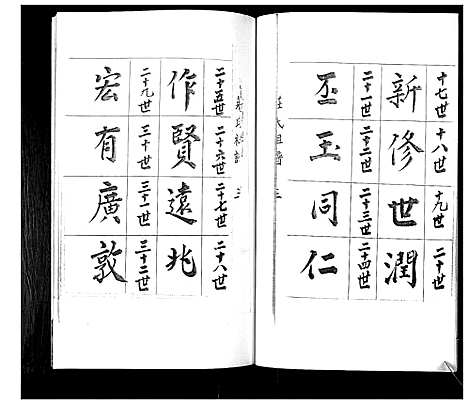 十七世 十八世 十九世 二十世
新 修 世 潤
二十一世 二十二世 二十三世 二十四世
丕 玉 同 仁
氏祖譜 三
二十五世 二十六世 二十七世 二十八世
作 賢 遠 兆
二十九世 三十世 三十一世 三十二世
宏 有 廣 敦